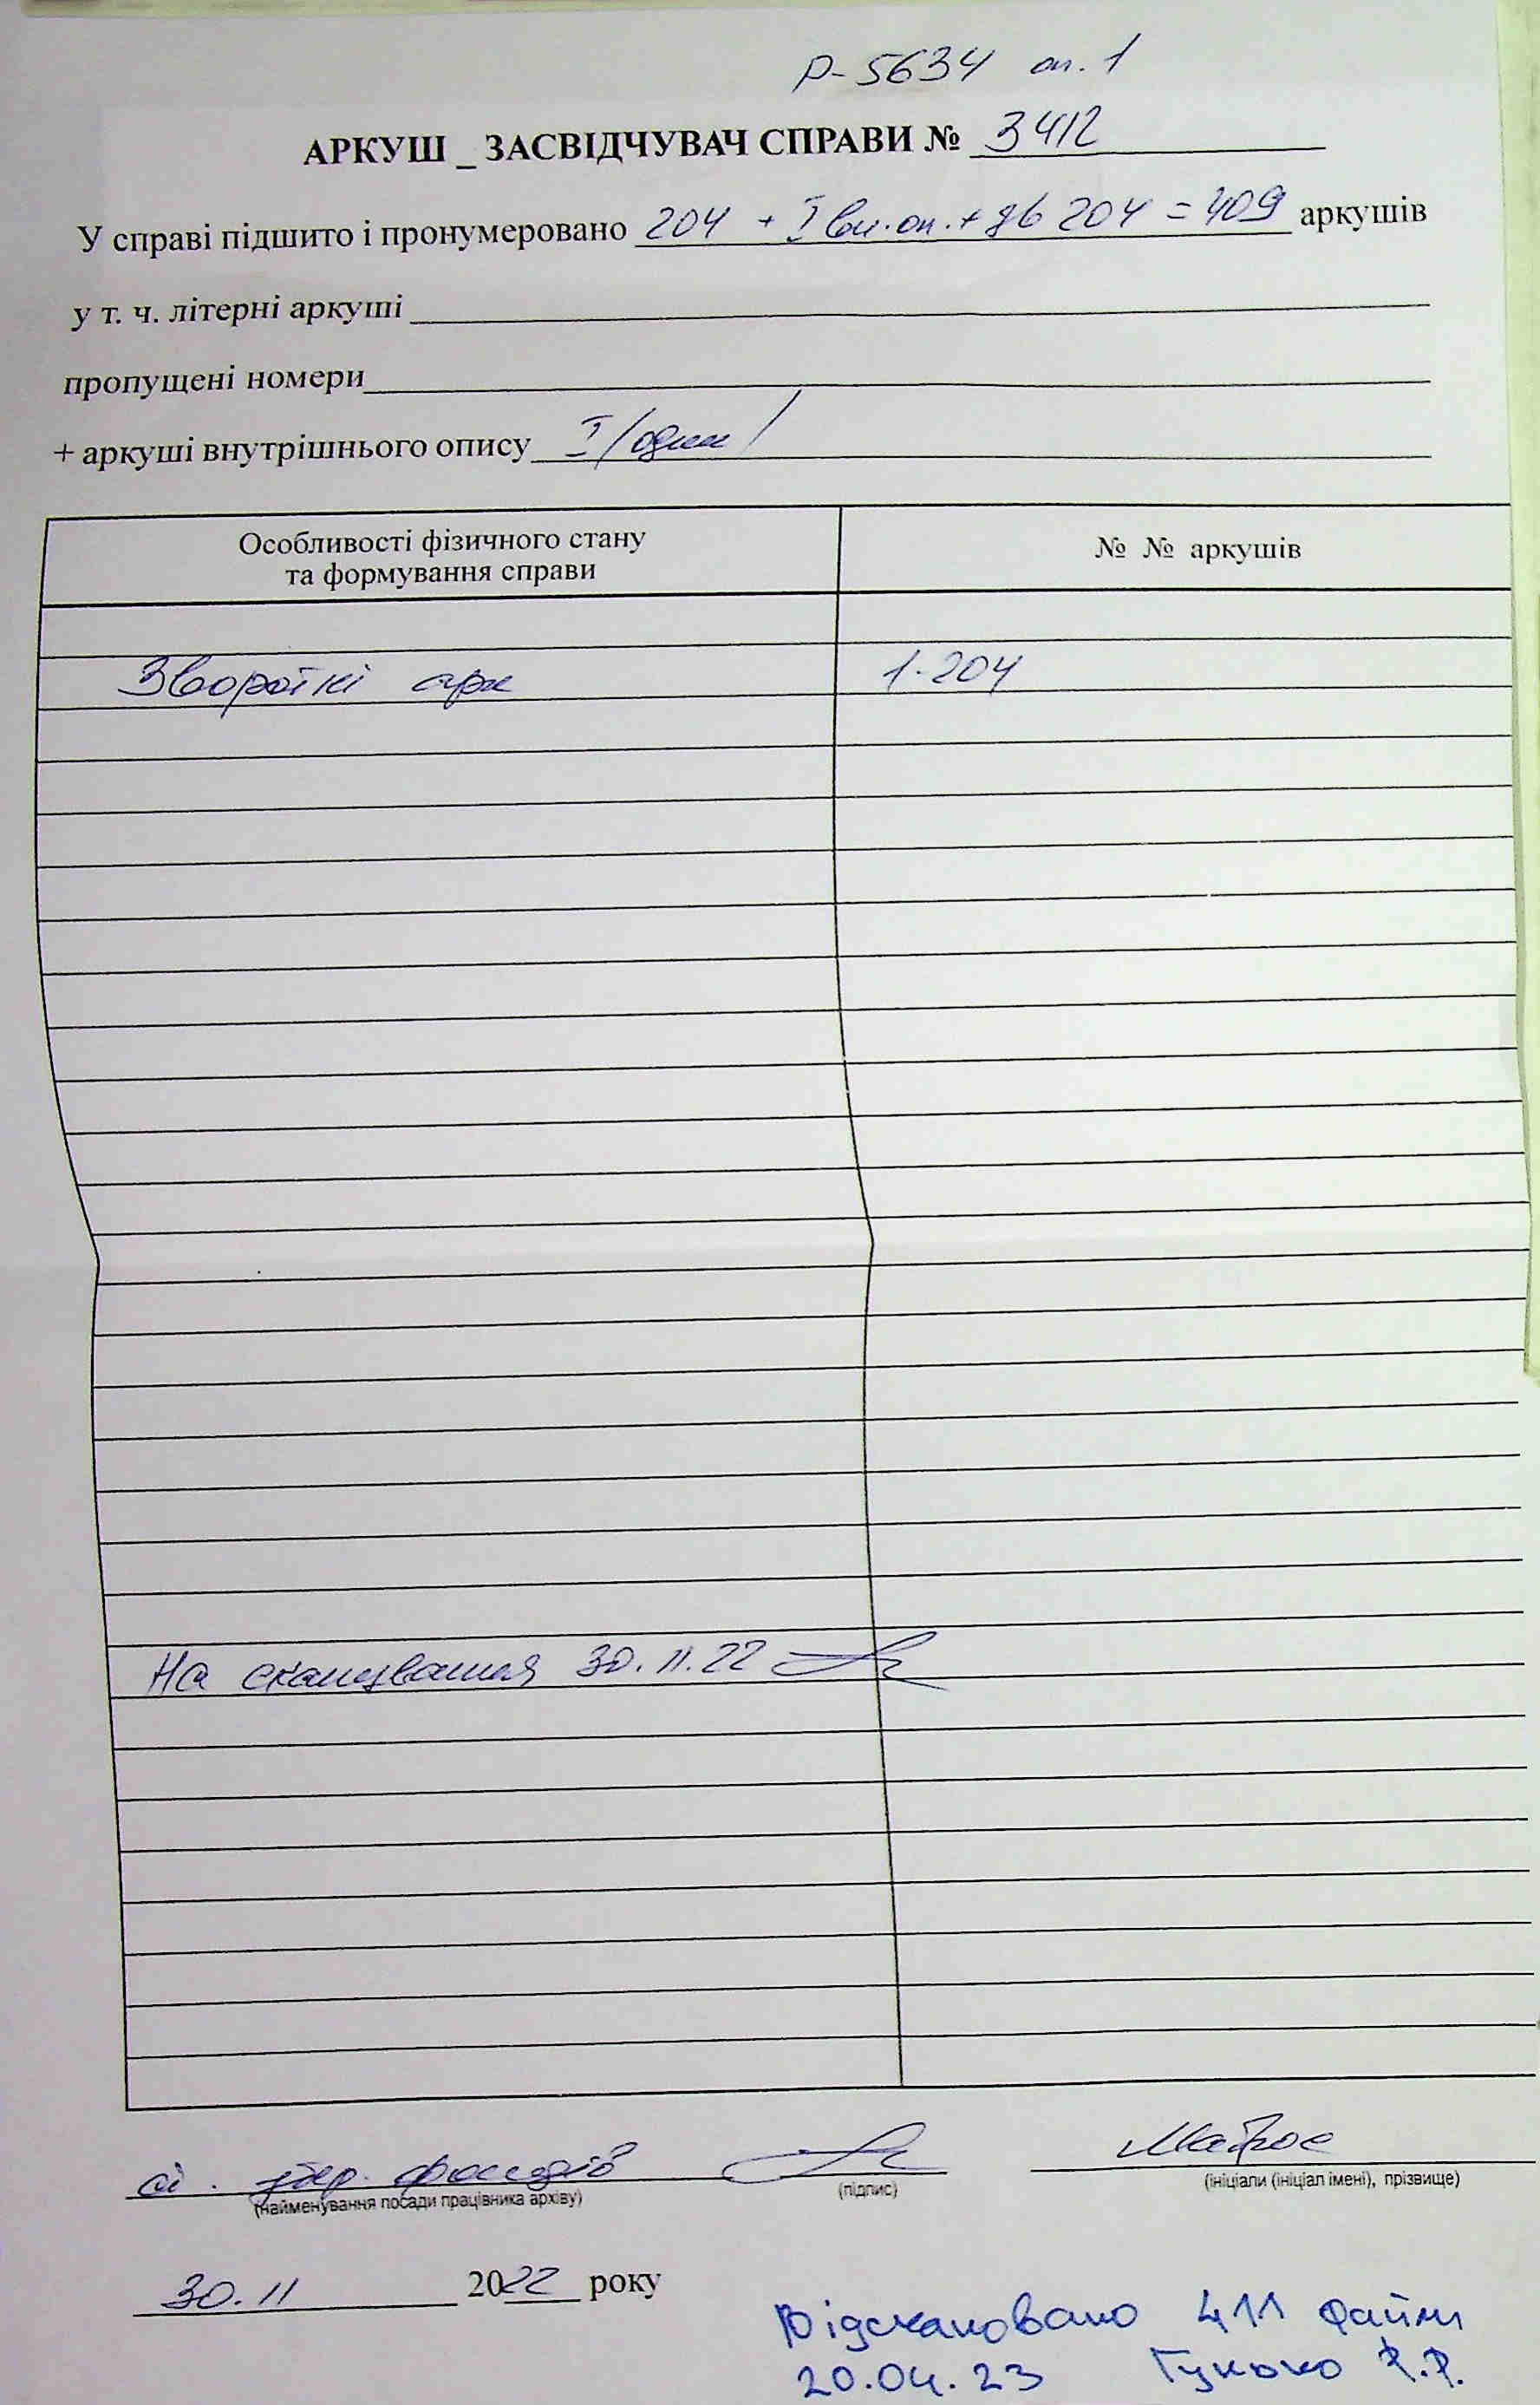 Р-5634 оп. 1
АРКУШ _ ЗАСВІДЧУВАЧ СПРАВИ № 3412
У справі підшито і пронумеровано 204 + I вн.оп. + зв 204 = 409 аркушів
у т. ч. літерні аркуші
пропущені номери
+ аркуші внутрішнього опису I /один/
Особливості фізичного стану
та формування справи
№ № аркушів
Зворотні арк 1-204
На сканування 30.11.22
зберігач фондів
(найменування посади працівника архіву) (підпис) (ініціали (ініціал імені), прізвище)
30.11 2022 року
Відскановано 411 файли
20.04.23